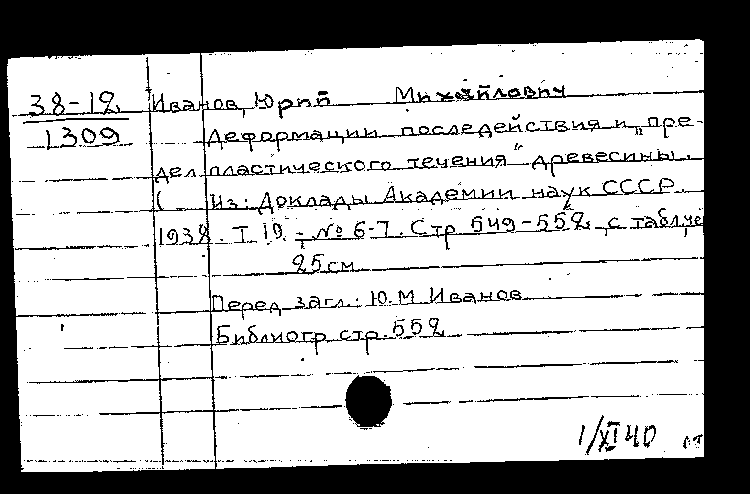 38-12 Иванов, Юрий Михайлович
1309 Деформации последействия и „пре-
дел пластического течения" древесины.
( Из: Доклады Академии наук СССР.
1938. Т 19. - № 6-7. Стр 549-552 с табл,
25 см
Перед загл.: Ю. М Иванов
Библиогр стр. 552
1/XI 40